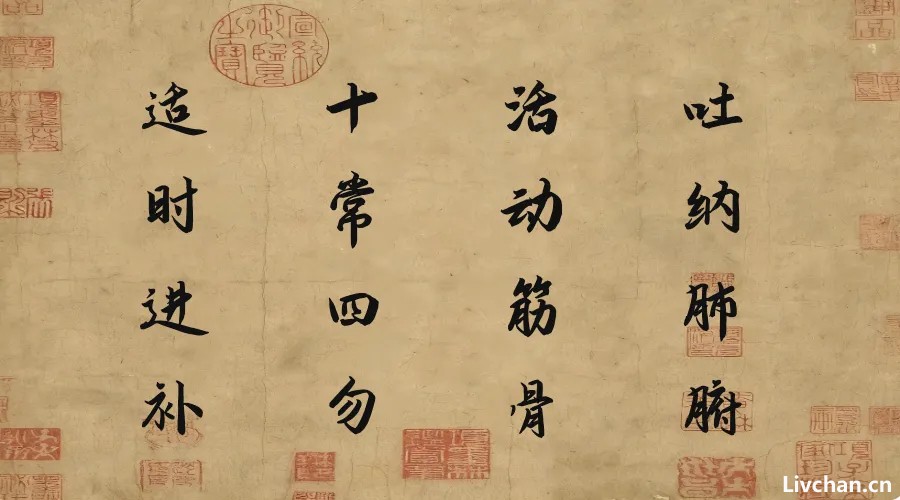 吐纳肺腑
活动筋骨
十常四勿
适时进补
Livchan.cn